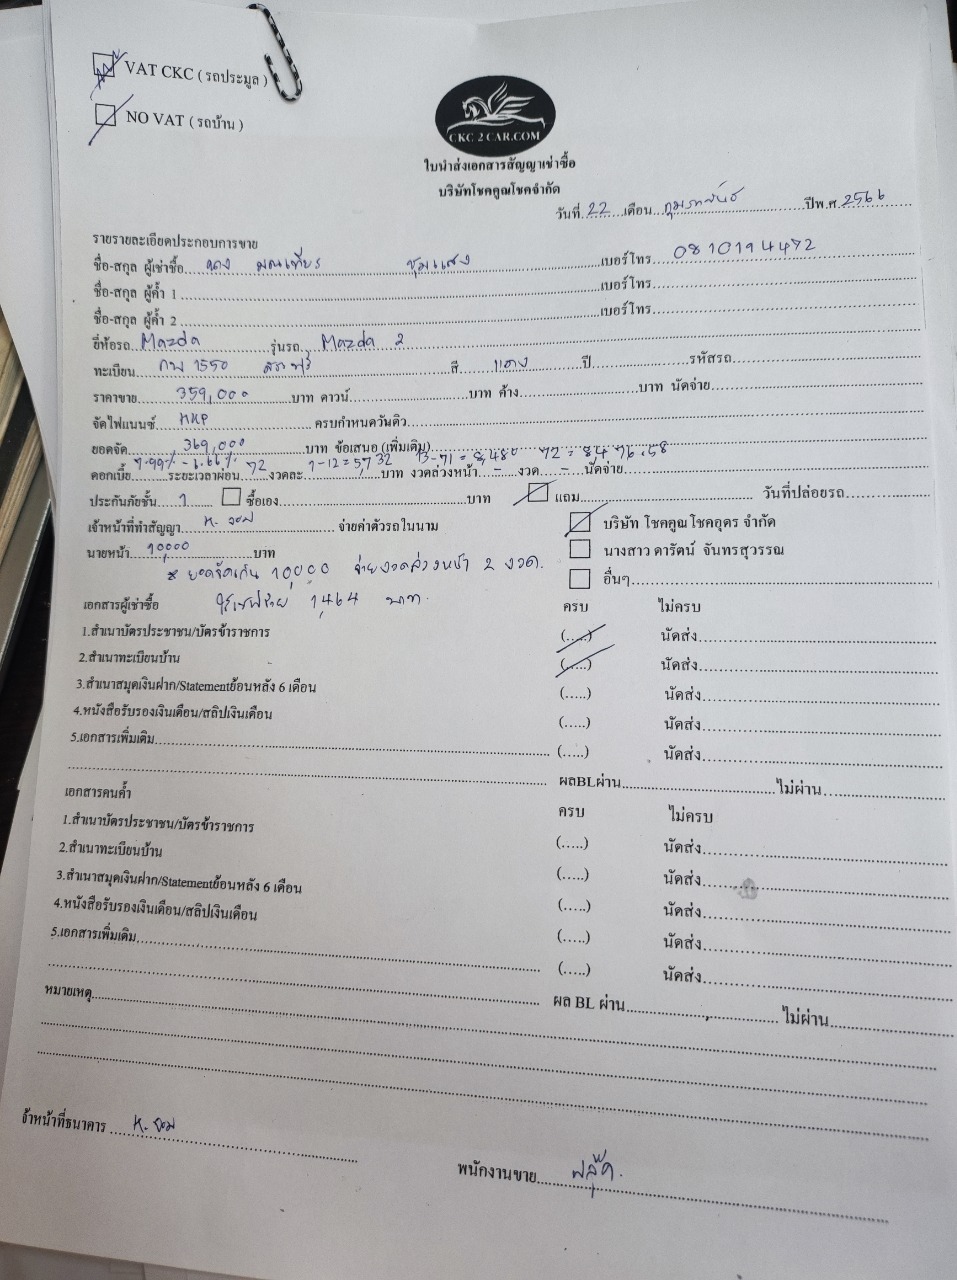 VAT CKC ( รถประมูล )
NO VAT ( รถบ้าน )
CKC 2 CAR.COM
ใบนำส่งเอกสารสัญญาเช่าซื้อ
บริษัทโชคคูณโชคจำกัด
วันที่ 22 เดือน กุมภาพันธ์ ปีพ.ศ. 2566
รายรายละเอียดประกอบการขาย
ชื่อ-สกุล ผู้เช่าซื้อ นาง มณเฑียร ชุมแสง เบอร์โทร 0810194472
ชื่อ-สกุล ผู้ค้ำ 1 เบอร์โทร
ชื่อ-สกุล ผู้ค้ำ 2 เบอร์โทร
ยี่ห้อรถ Mazda รุ่นรถ Mazda 2
ทะเบียน กพ 1550 สระบุรี สี แดง ปี รหัสรถ
ราคาขาย 359,000 บาท ดาวน์ บาท ค้าง บาท นัดจ่าย
จัดไฟแนนซ์ KKP ครบกำหนดวันดิว
ยอดจัด 369,000 บาท ข้อเสนอ (เพิ่มเติม)
ดอกเบี้ย ระยะเวลาผ่อน 72 งวดละ 1-12 = 5,732 13-71 = 8,480 72 = 8,476.58 บาท งวดล่วงหน้า - งวด - นัดจ่าย
ประกันภัยชั้น 1 ซื้อเอง บาท แถม วันที่ปล่อยรถ
เจ้าหน้าที่ทำสัญญา จ่ายค่าตัวรถในนาม บริษัท โชคคูณโชคอุดร จำกัด
นายหน้า 10,000 บาท นางสาว ดารัตน์ จันทรสุวรรณ
* ยอดจัดเกิน 10,000 จ่ายงวดล่วงหน้า 2 งวด. อื่นๆ
1,464 บาท.
เอกสารผู้เช่าซื้อ ครบ ไม่ครบ
1.สำเนาบัตรประชาชน/บัตรข้าราชการ (.....) นัดส่ง
2.สำเนาทะเบียนบ้าน (.....) นัดส่ง
3.สำเนาสมุดเงินฝาก/Statementย้อนหลัง 6 เดือน (.....) นัดส่ง
4.หนังสือรับรองเงินเดือน/สลิปเงินเดือน (.....) นัดส่ง
5.เอกสารเพิ่มเติม (.....) นัดส่ง
ผลBLผ่าน ไม่ผ่าน
เอกสารคนค้ำ ครบ ไม่ครบ
1.สำเนาบัตรประชาชน/บัตรข้าราชการ (.....) นัดส่ง
2.สำเนาทะเบียนบ้าน (.....) นัดส่ง
3.สำเนาสมุดเงินฝาก/Statementย้อนหลัง 6 เดือน (.....) นัดส่ง
4.หนังสือรับรองเงินเดือน/สลิปเงินเดือน (.....) นัดส่ง
5.เอกสารเพิ่มเติม (.....) นัดส่ง
ผล BL ผ่าน ไม่ผ่าน
หมายเหตุ
จ้าหน้าที่ธนาคาร
พนักงานขาย ฟลุ๊ค.